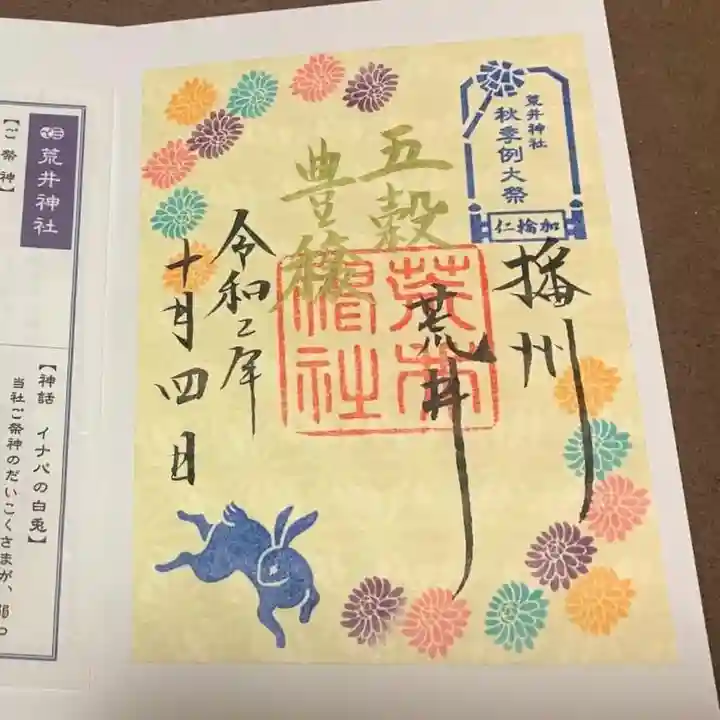 荒井神社
秋季例大祭
加輪仁
播州
荒井
五穀
豊穣
荒井
神社
令和二年
十月四日
荒井神社
【ご祭神】
【神話 イナバの白兎】
当社ご祭神のだいこくさまが、